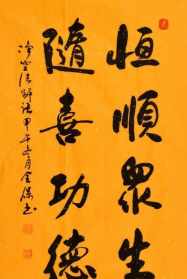 恒順眾生
隨喜功德
淨空法師語甲午六月金保书